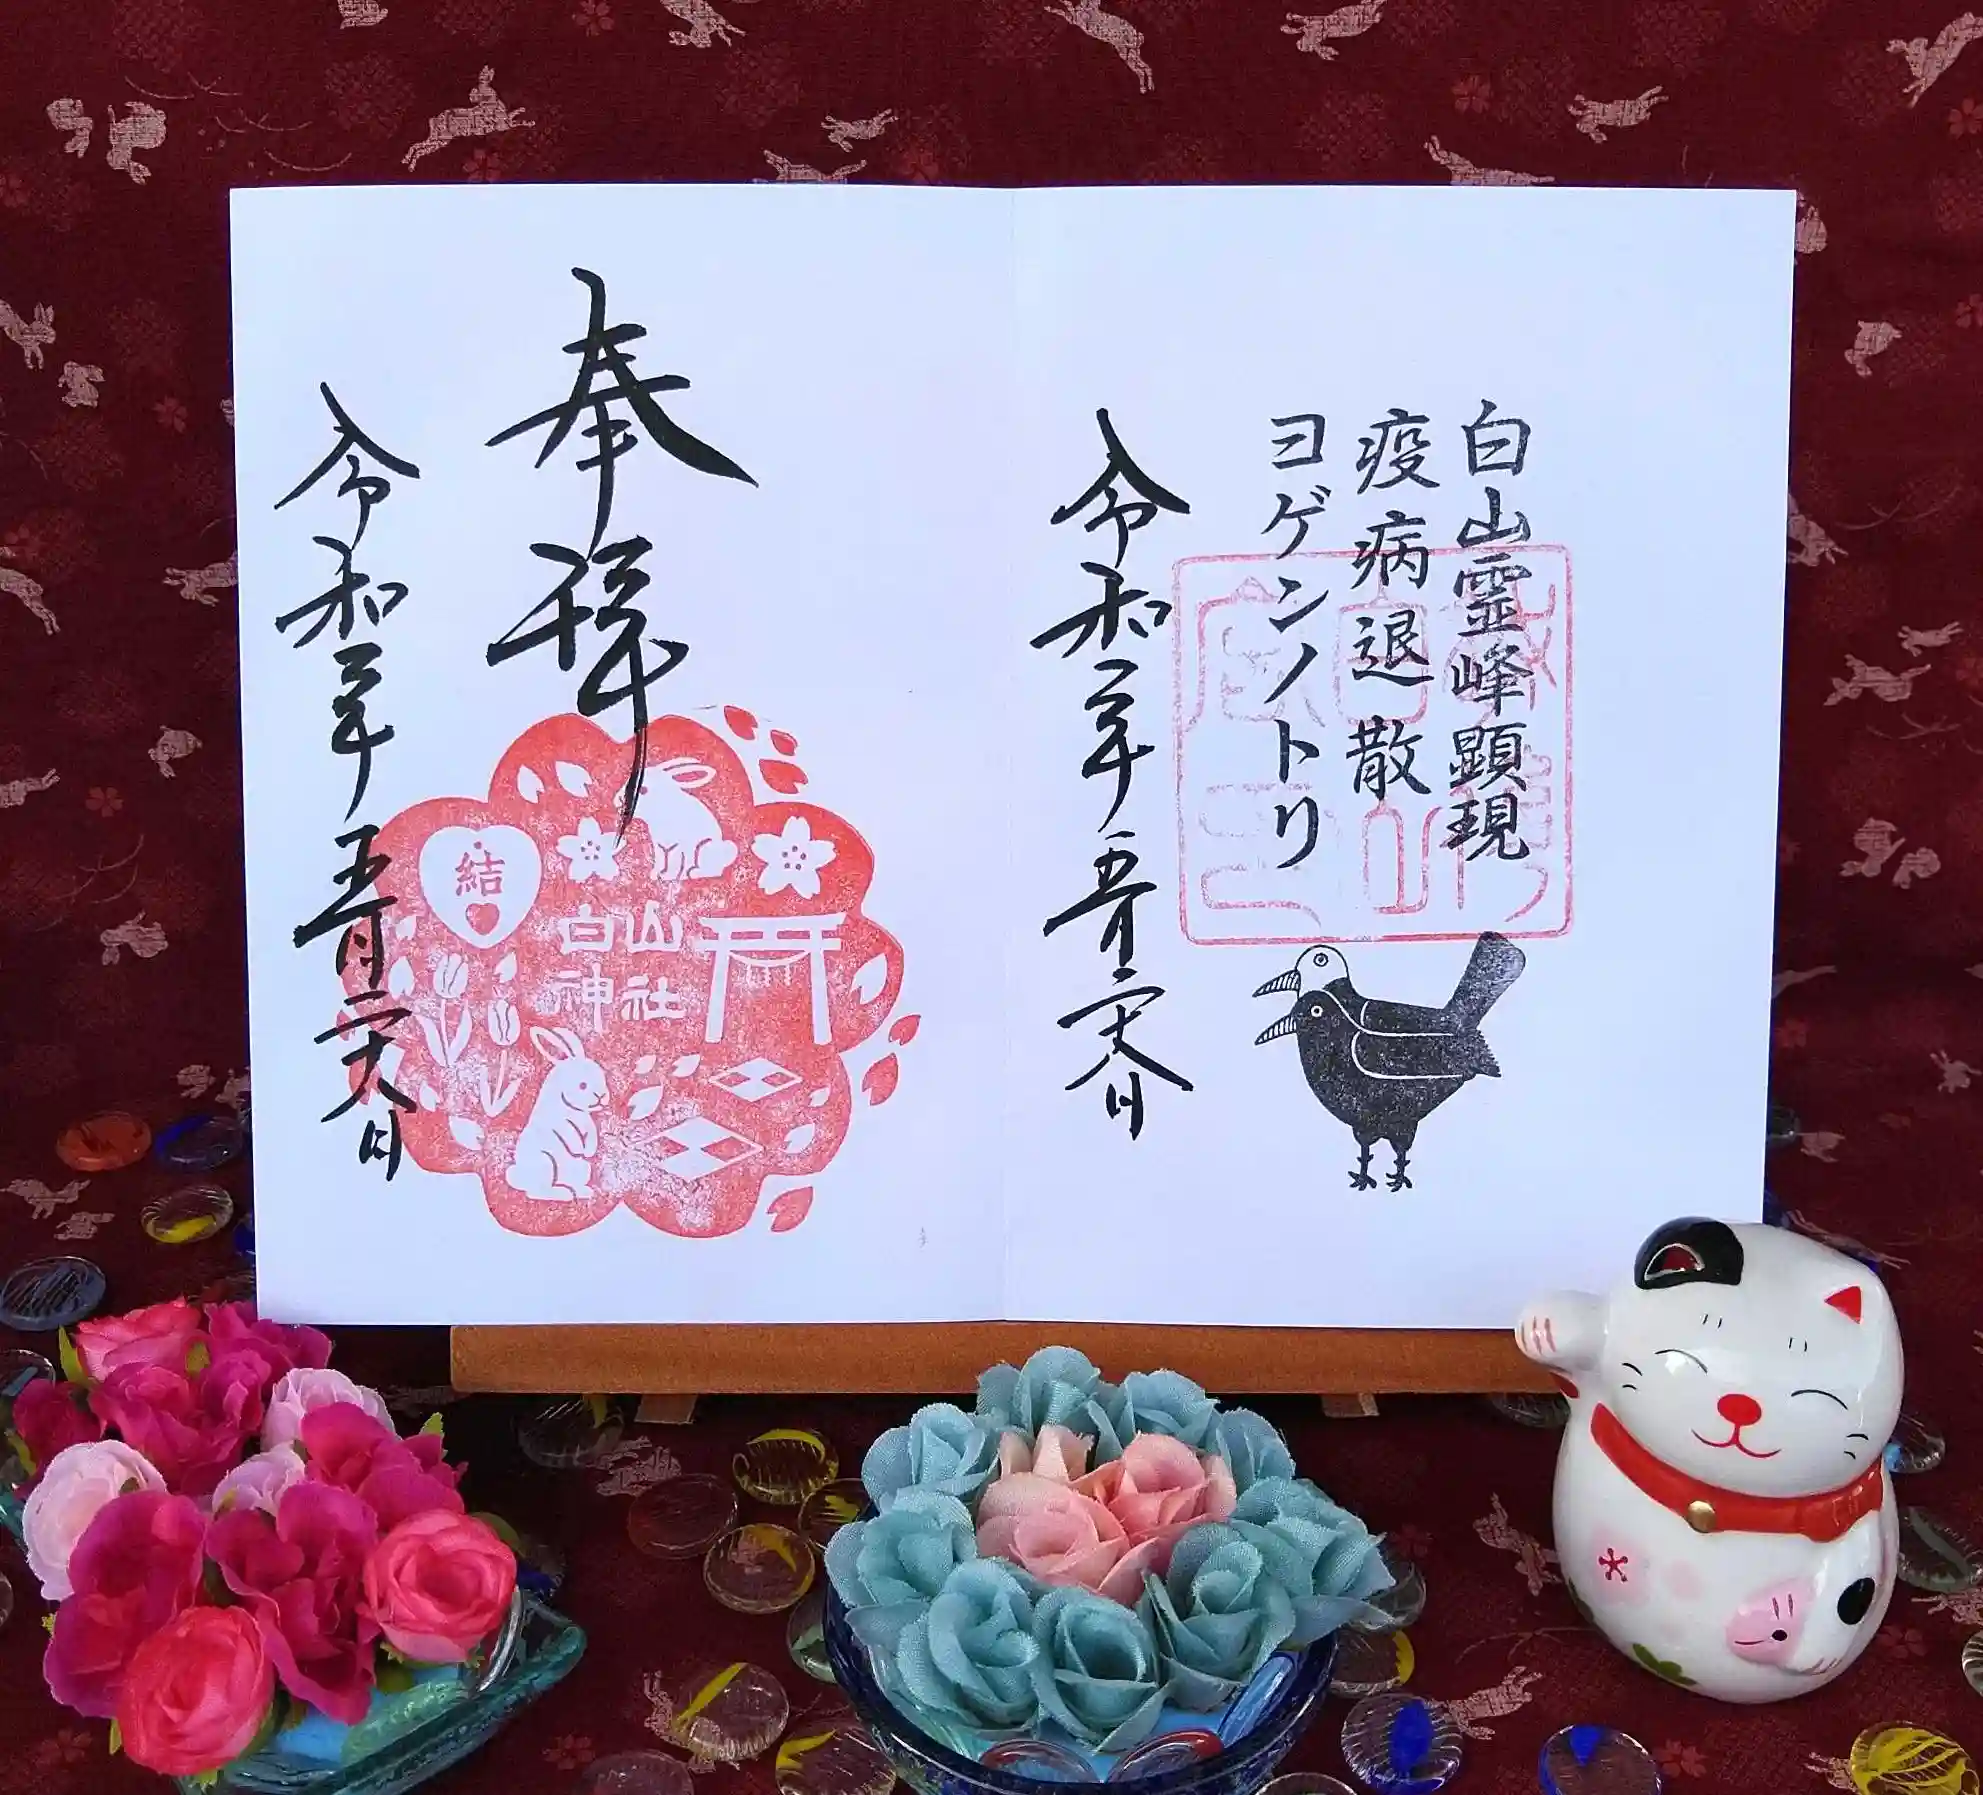 白山霊峰顕現
疫病退散
ヨゲンノトリ
令和二年五月二十八日
奉拝
令和二年五月二十八日
結
白山
神社